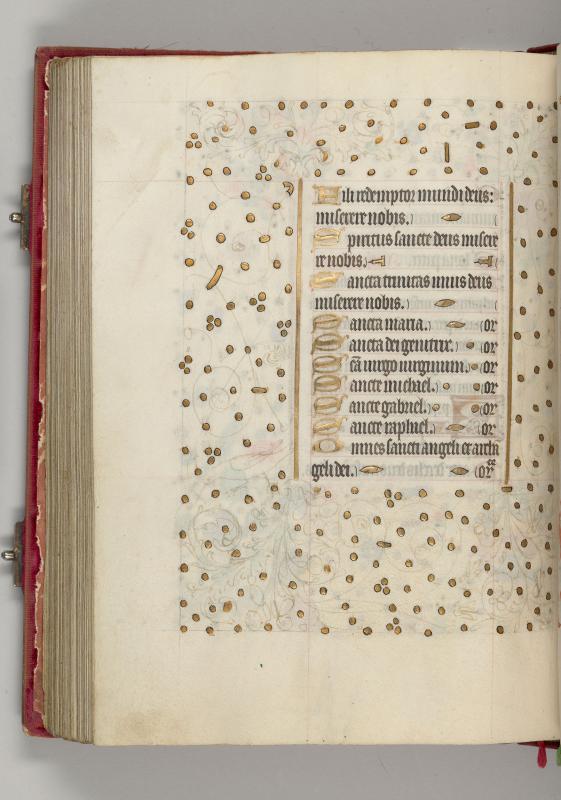 Fili redemptor mundi deus:
miserere nobis.
Spiritus sancte deus misere
re nobis.
Sancta trinitas unus deus
miserere nobis.
Sancta maria. or
Sancta dei genitrix. or
Sca virgo virginum. or
Sancte michael. or
Sancte gabriel. or
Sancte raphael. or
Omnes sancti angeli et archa
geli dei. or